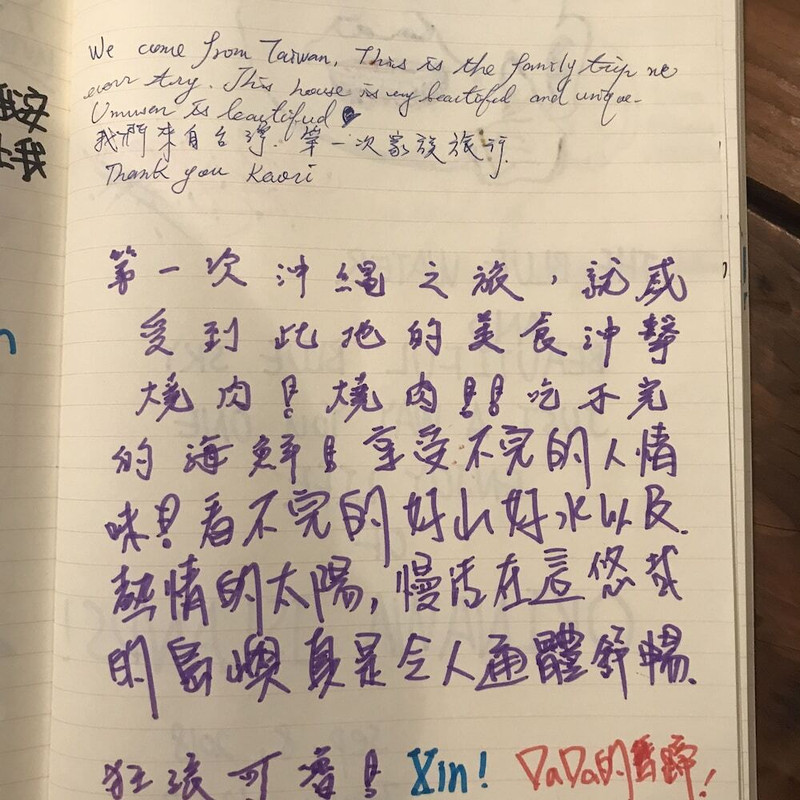 We come from Taiwan. This is the family trip we
ever try. This house is very beautiful and unique.
Umusun is beautiful
我們來自台灣. 第一次家族旅行.
Thank you Kaori
第一次沖繩之旅,就感
受到此地的美食沖擊
燒肉!燒肉!!吃不完
的海鮮!享受不完的人情
味!看不完的好山好水以及.
熱情的太陽,慢活在這悠哉
的島嶼真是令人通體舒暢.
狂浪可愛! Xin! DaDa的